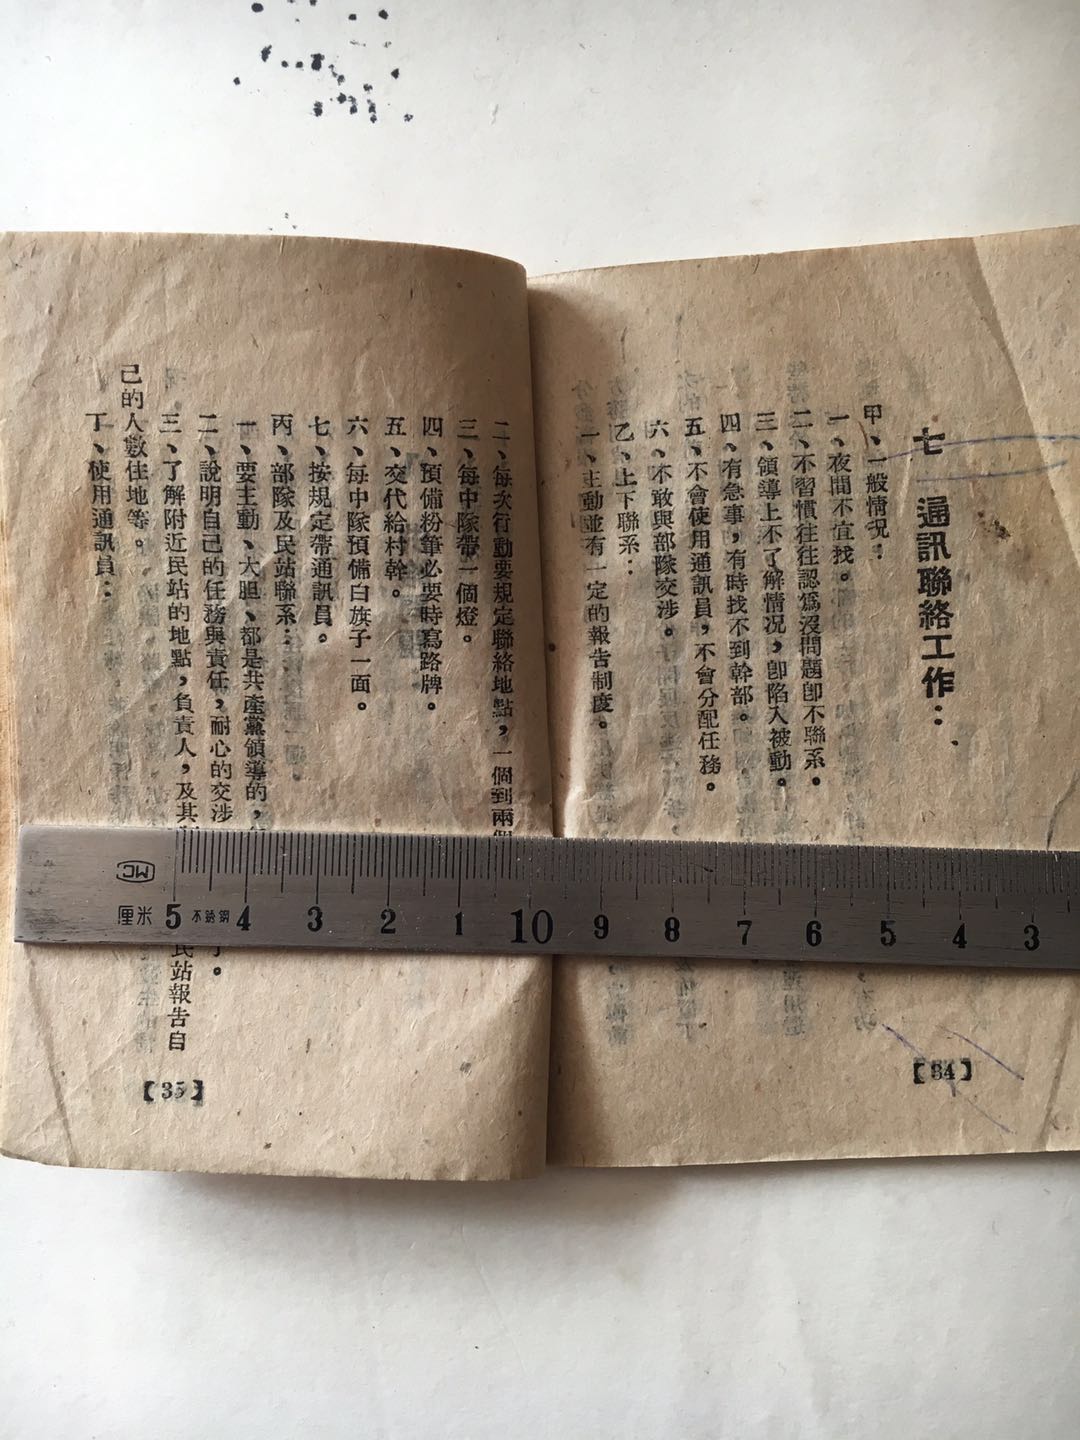 七 通訊聯絡工作：
甲、一般情況：
一、夜間不宜找。
二、不習慣往往認爲沒問題卽不聯系。
三、領導上不了解情況，卽陷入被動。
四、有急事，有時找不到幹部。
五、不會使用通訊員，不會分配任務。
六、不敢與部隊交涉。
乙、上下聯系：
一、主動並有一定的報告制度。
【34】
二、每次行動要規定聯絡地點，一個到兩個
三、每中隊帶一個燈。
四、預備粉筆必要時寫路牌。
五、交代給村幹。
六、每中隊預備白旗子一面。
七、按規定帶通訊員。
丙、部隊及民站聯系：
一、要主動、大胆、都是共產黨領導的，
二、說明自己的任務與責任，耐心的交涉
三、了解附近民站的地點，負責人，及其
民站報告自
己的人數住地等。
丁、使用通訊員：
【35】
MC
厘米 5 不銹鋼 4 3 2 1 10 9 8 7 6 5 4 3